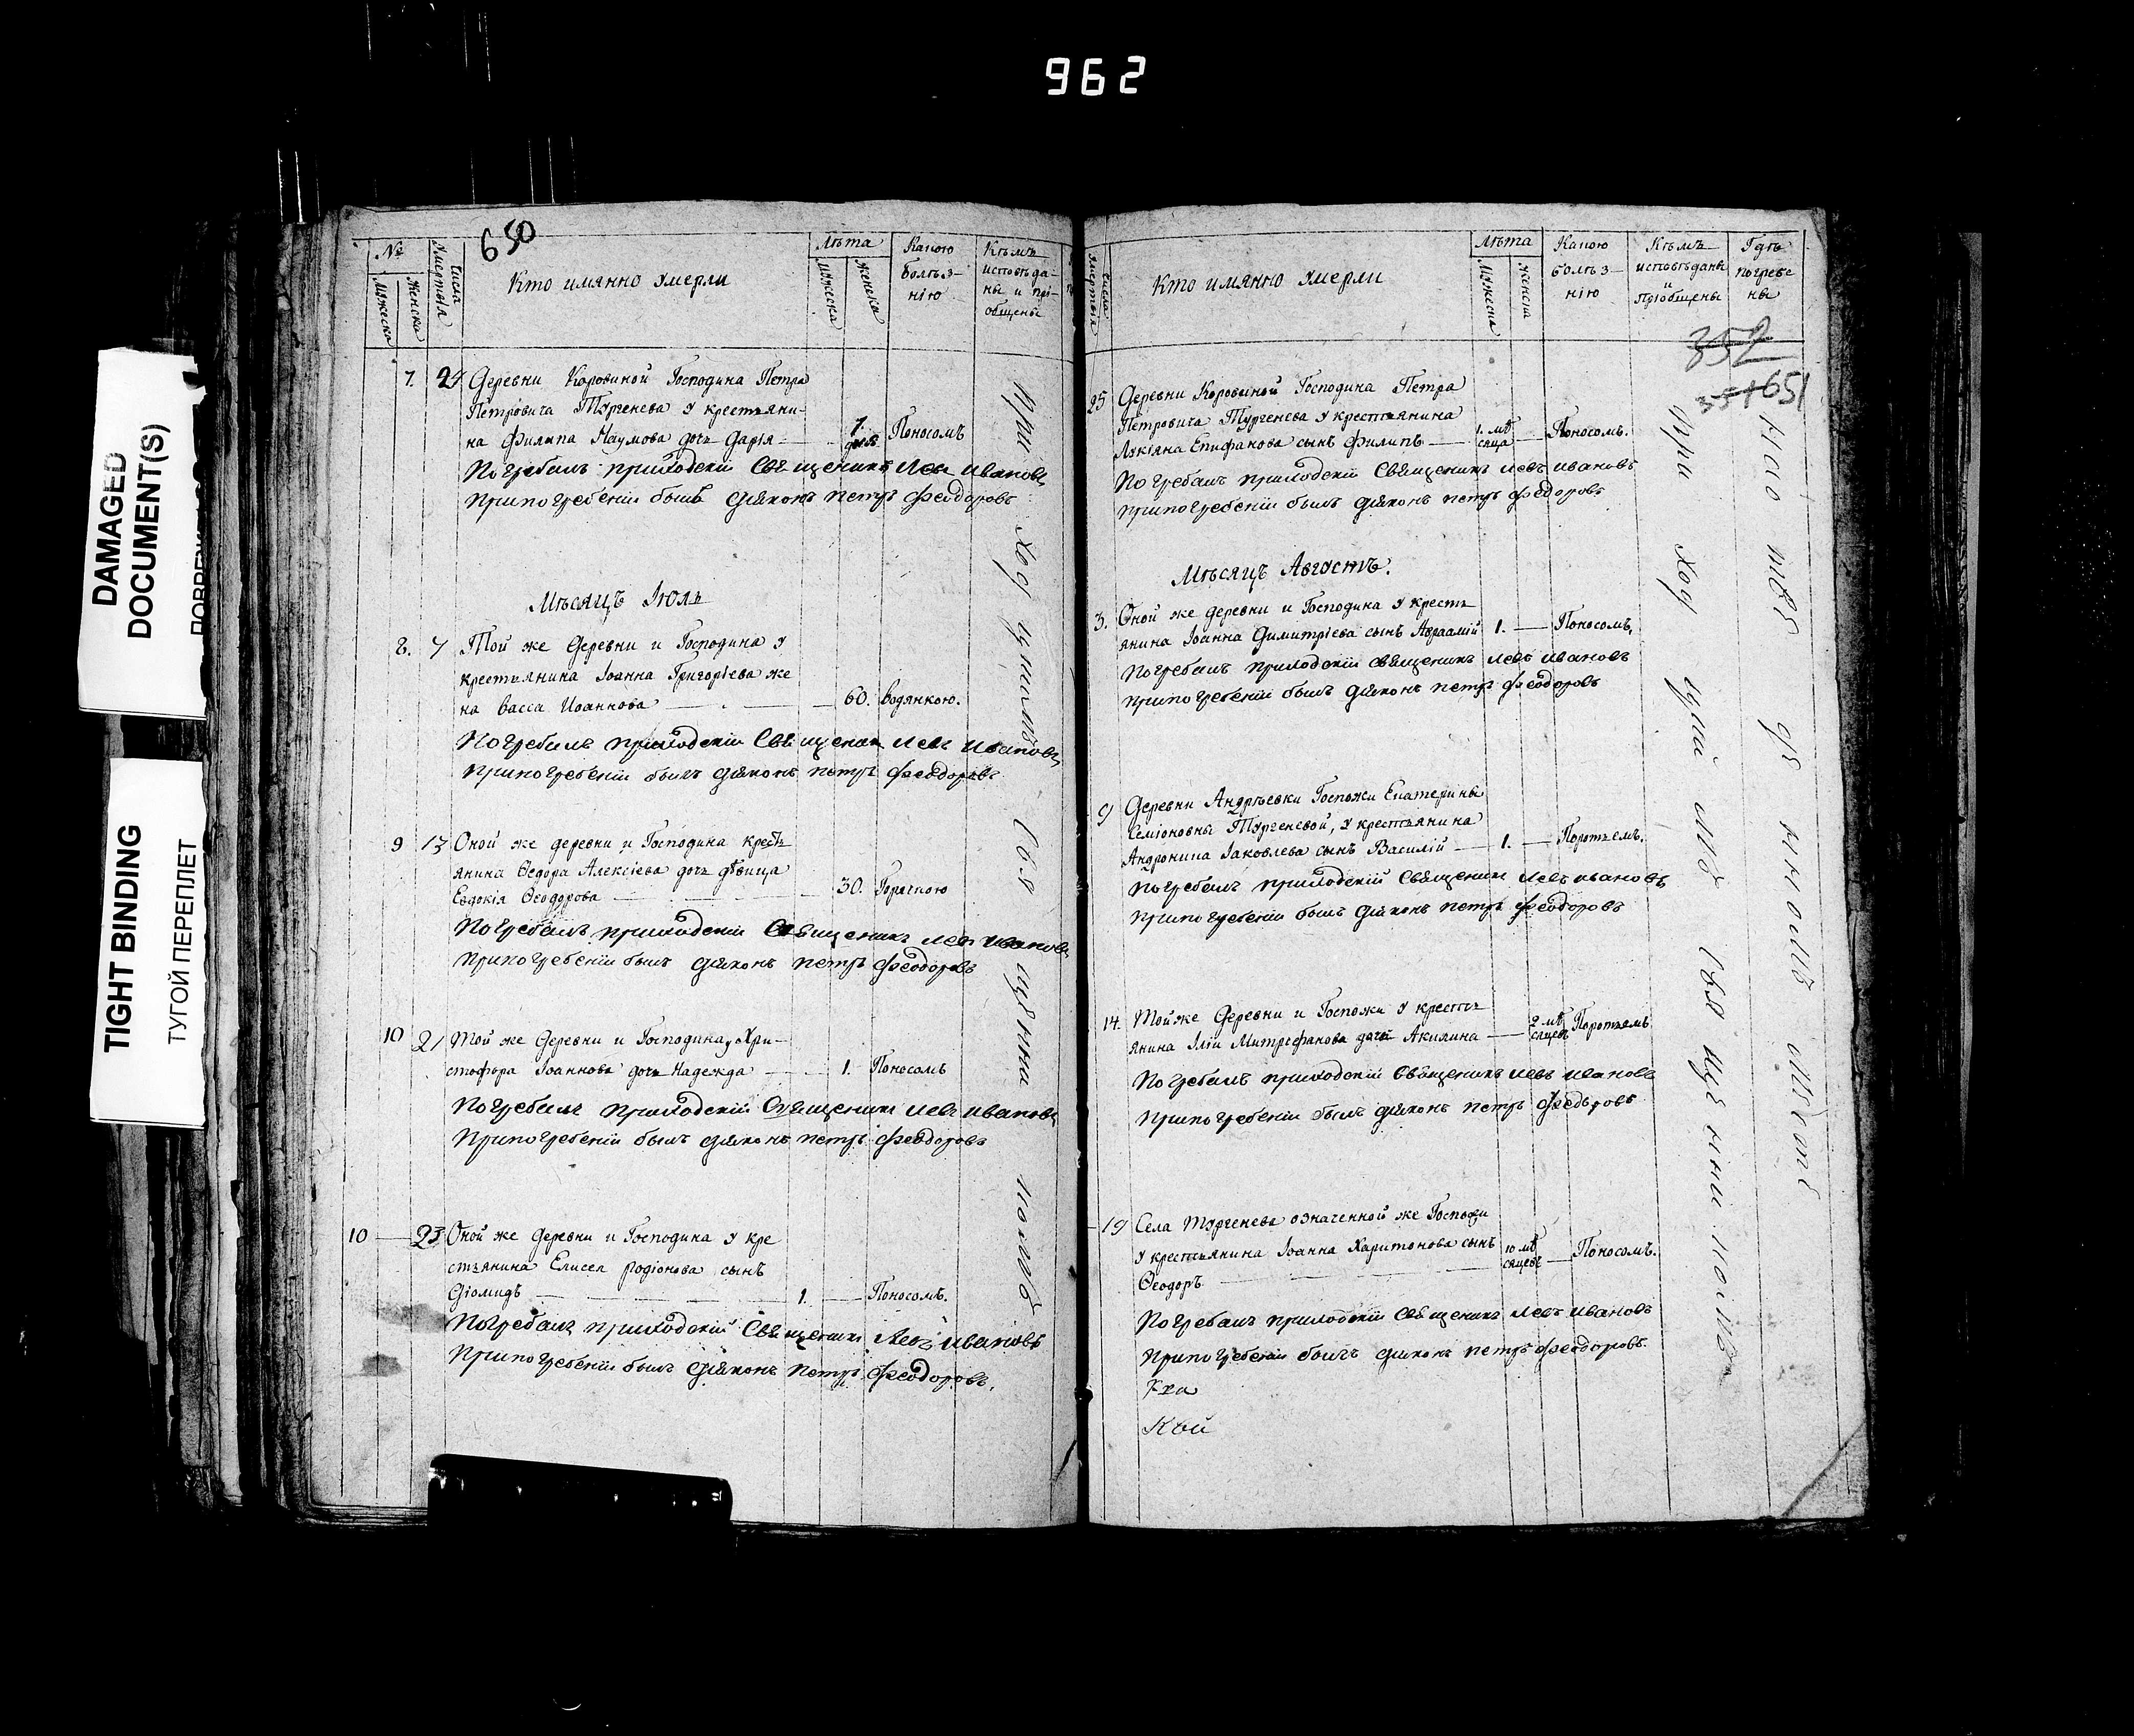 962
DAMAGED
DOCUMENT(S)
TIGHT BINDING
ТУГОЙ ПЕРЕПЛЕТ
650
№
Мужеска
Женска
Числа
Умертвія
Кто имянно умерли
Лѣта
Мужеска
Женска
Какою
болѣз-
нію
Кѣмъ
исповѣда-
ны и прі-
общены
7. 24 Деревни Коровиной Господина Петра
Петровича Тургенева у крестьяни-
на Филипа Наумова дочь Дарья 7. Поносомъ
Погребалъ приходскій Священникъ Левъ Ивановъ
При погребеніи былъ Діяконъ Петръ Феодоровъ
Мѣсяцъ Іюль
8. 7 Той же Деревни и Господина у
крестьянина Іоанна Григоріева же
на Васса Иоаннова 60. Водянкою.
Погребалъ приходскій Священикъ Левъ Ивановъ
При погребеніи былъ Діяконъ Петръ Феодоровъ
9 13 Оной же деревни и Господина крестъ
янина Ѳедора Алексіева дочь дѣвица
Евдокія Ѳеодорова 30. Горячкою
Погребалъ приходскій Священикъ Левъ Ивановъ
При погребеніи былъ Діяконъ Петръ Феодоровъ
10 21 Той же Деревни и Господина у Хри-
стофора Іоаннова дочь Надежда 1. Поносомъ
Погребалъ приходскій Священикъ Левъ Ивановъ
При погребеніи былъ Діяконъ Петръ Феодоровъ
10 23 Оной же деревни и Господина у кре
стьянина Елисея Родіонова сынъ
Діомидъ 1. Поносомъ.
Погребалъ приходскій Священикъ Левъ Ивановъ
При погребеніи былъ Діяконъ Петръ Феодоровъ.
Числа
Умертвія
Кто имянно умерли
Лѣта
Мужеска
Женска
Какою
болѣз-
нію
Кѣмъ
исповѣданы
и
пріобщены
Гдѣ
погребе
ны
352
651
25 Деревни Коровиной Господина Петра
Петровича Тургенева у крестьянина
Лукіяна Епифанова сынъ Филипъ 1. мѣ
сяца Поносомъ.
Погребалъ приходскій Священикъ Левъ Ивановъ
При погребеніи былъ Діяконъ Петръ Феодоровъ
Мѣсяцъ Августъ.
3. Оной же деревни и Господина у кресть
янина Іоанна Димитріева сынъ Авраамій 1. Поносомъ,
Погребалъ приходскій Священикъ Левъ Ивановъ
При погребеніи былъ Діяконъ Петръ Феодоровъ
9 Деревни Андрѣевки Госпожи Екатерины
Семіоновны Тургеневой, у крестьянина
Андроника Іаковлева сынъ Василій 1. Поротьемъ.
Погребалъ приходскій Священикъ Левъ Ивановъ
При погребеніи былъ Діяконъ Петръ Феодоровъ
14. Той же Деревни и Госпожи у кресть
янина Іліи Митрофанова дочь Акилина 2 мѣ
сяцевъ Поротьемъ
Погребалъ приходскій Священикъ Левъ Ивановъ
При погребеніи былъ Діяконъ Петръ Феодоровъ
19 Села Тургенева означенной же Госпожи
у крестьянина Іоанна Харитонова сынъ
Ѳеодоръ 10 мѣ
сяцевъ Поносомъ.
Погребалъ приходскій Священикъ Левъ Ивановъ
При погребеніи былъ Діяконъ Петръ Феодоровъ.